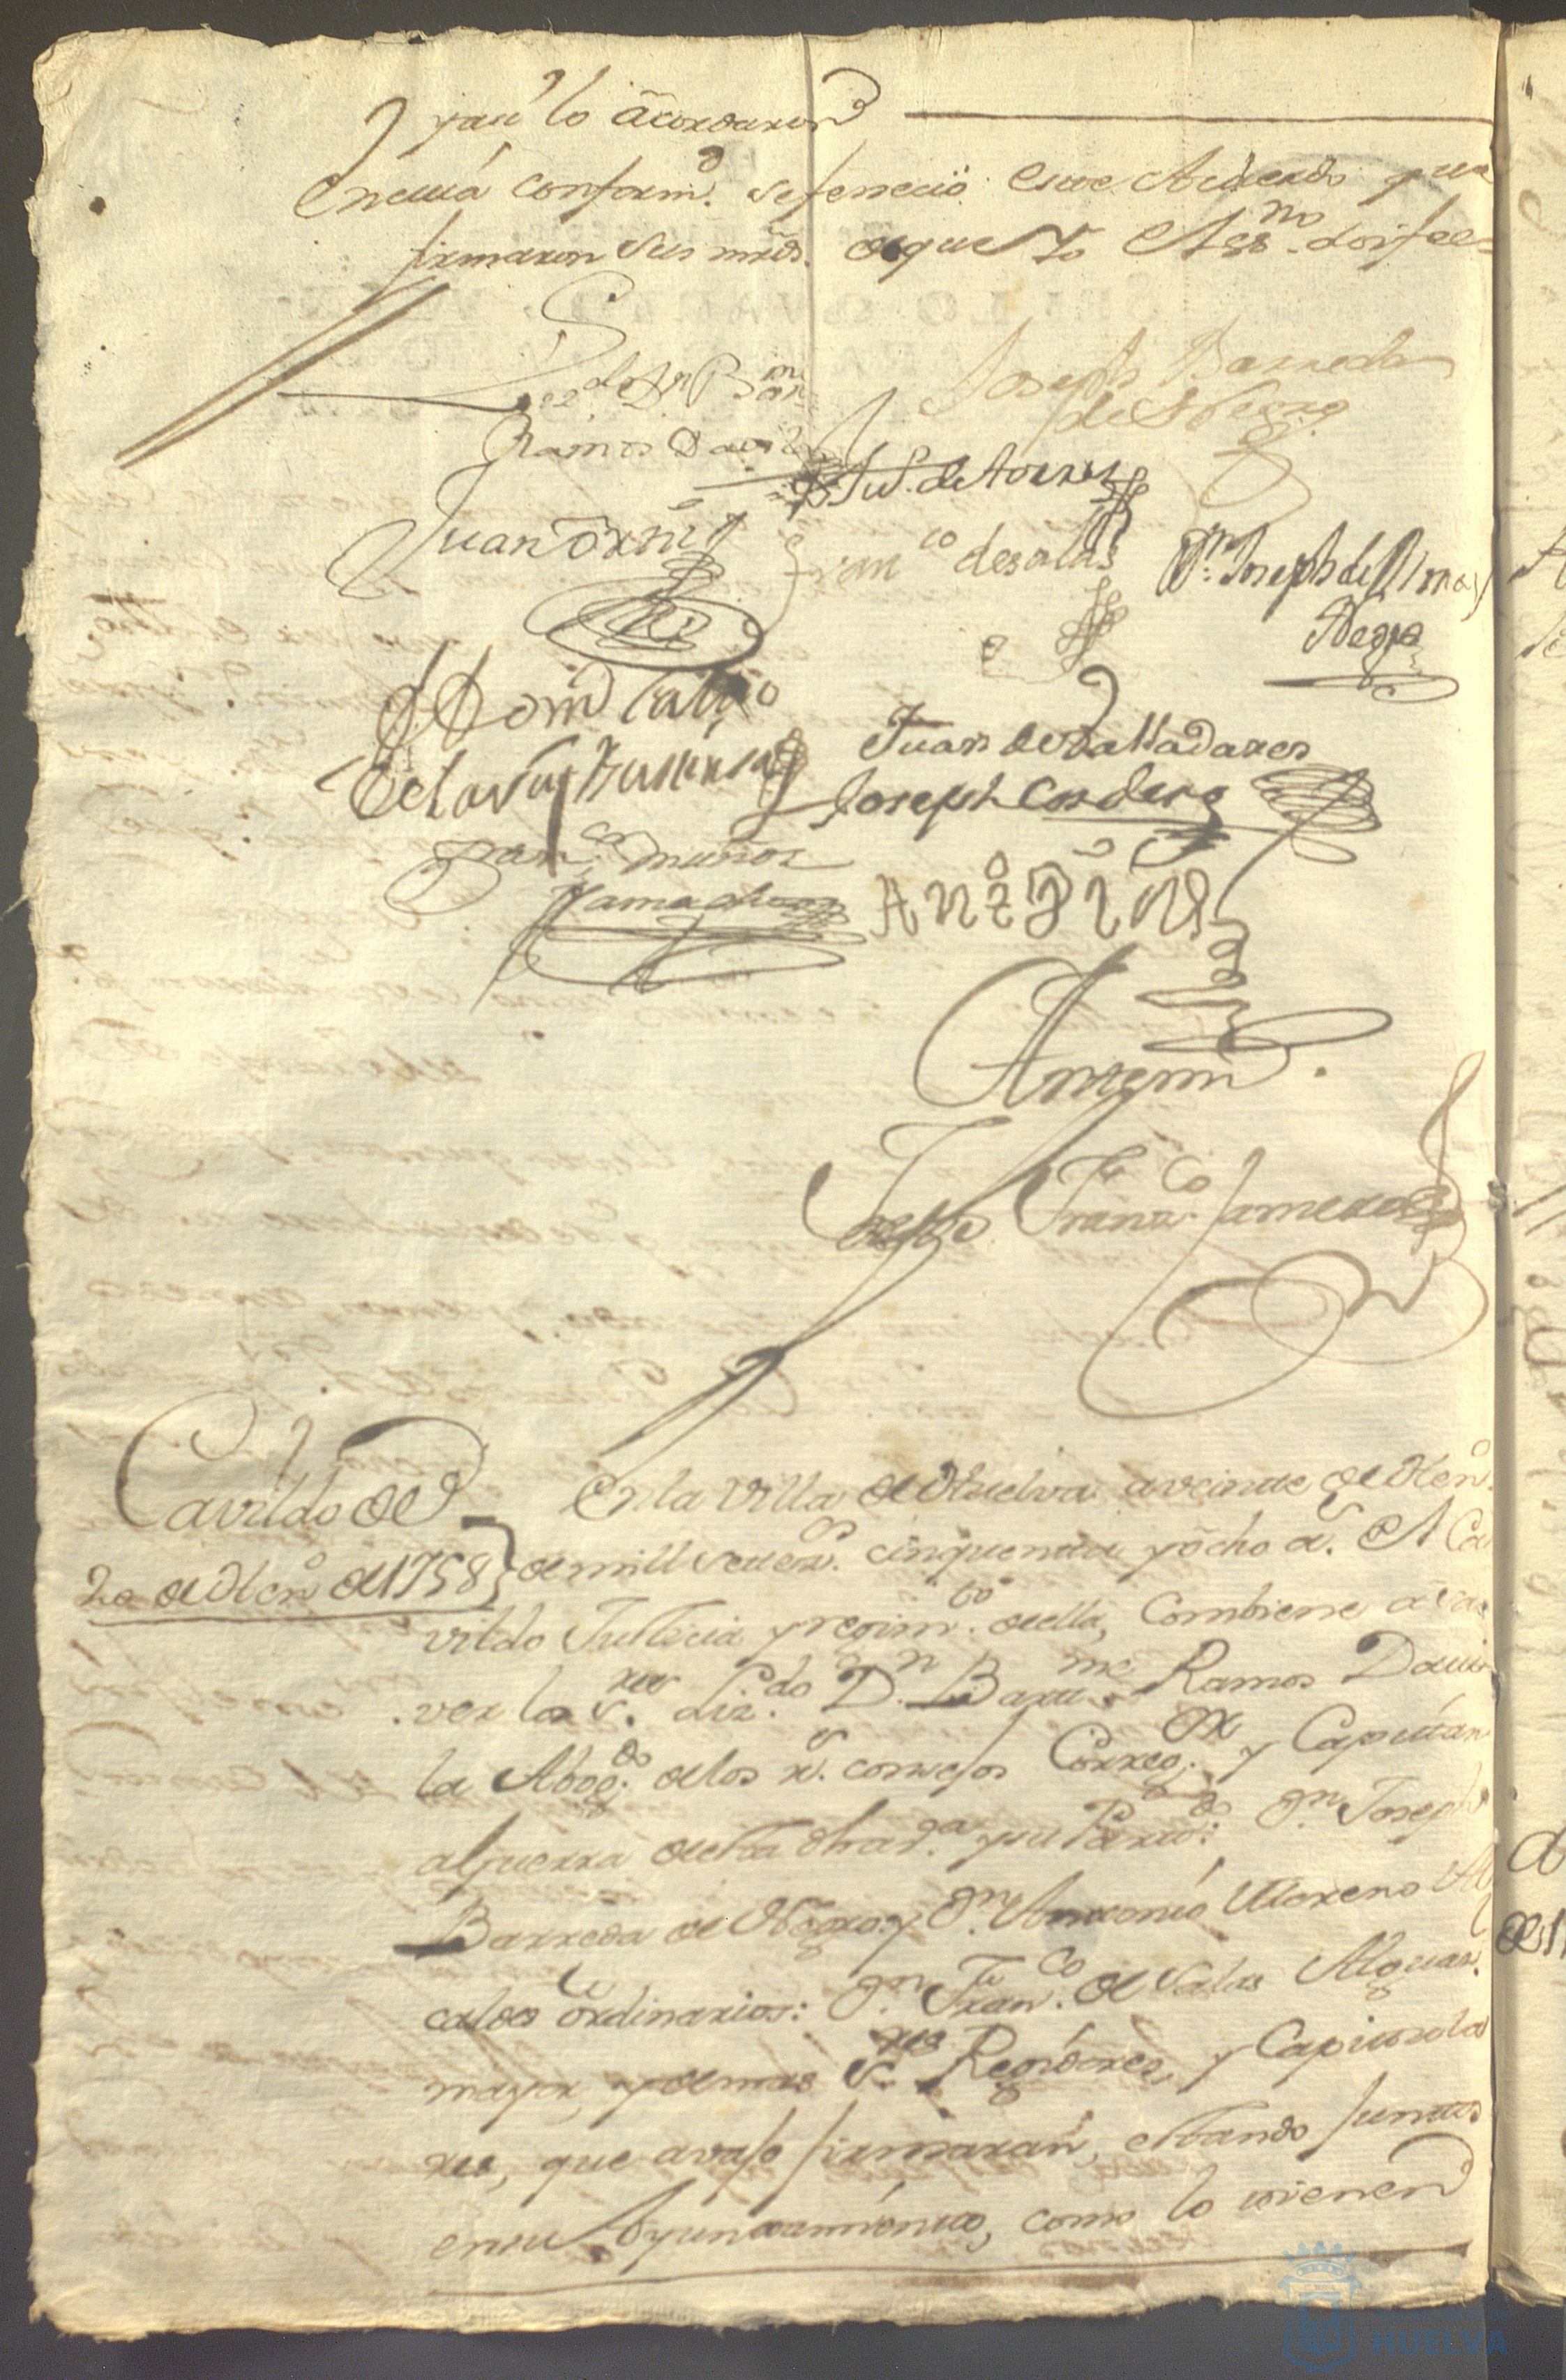 y así lo acordaron
En cuia conformd. se feneció este Acuerdo que
firmaron sus mrds. de que Yo el Essno. doi fee=
Lizdo. Dn. Barme
Ramos Davila
Joseph Barreda
de Negro
Ju. de torres
Juan ortiz
Franco de salas
Dn. Joseph de Lima y
Negro
Domo
Juan de Valladares
Joseph Cordero
Franco muños
Antoni
Antemi
Josph Franco
Cavildo de
20 de Henº de 1758
En la Villa de Huelva a veinte de Henº.
de mill setezs. cinquenta y ocho as. El Ca
vildo Justicia y regimto. de ella, Combiene a sa
ver los sres. Liz.do Dn. Barme Ramos Davi
la Abogdo. de los rs. consejos Corregor. y Capitán
a guerra de esta dha va. y su Partdo: Dn. Joseph
Barreda de Negro y Dn. Antonio Moreno Al
caldes ordinarios: Dn. Franco. de Salas Alguaz.
mayor, y demas Sres Regidores, y Capitula
res, que avajo firmarán, estando juntos
en su Ayuntamiento, como lo tienen
HUELVA